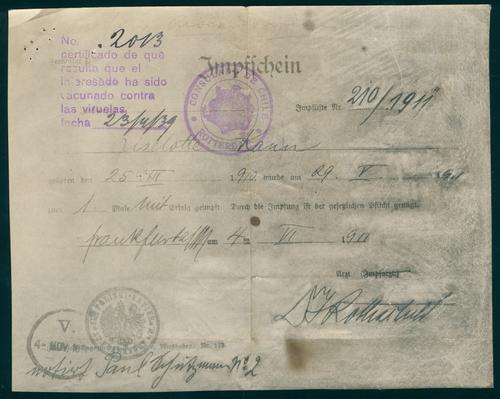 No. 2013
certificado de que
resulta que el
interesado ha sido
vacunado contra
las viruelas.
fecha 23/4/39
Impfschein
CONSULADO DE CHILE
ROTTERDAM
Impfliste Nr. 210/1911
Liselotte Kann
geboren den 25. XII 1910, wurde am 29. V. 1911
zum 1. Male mit Erfolg geimpft. Durch die Impfung ist der gesetzlichen Pflicht genügt.
Frankfurt a/M am 4 ten VI 1911
Arzt (Impfarzt).
V.
4- NOV.
notirt Paul Schützmann No 2